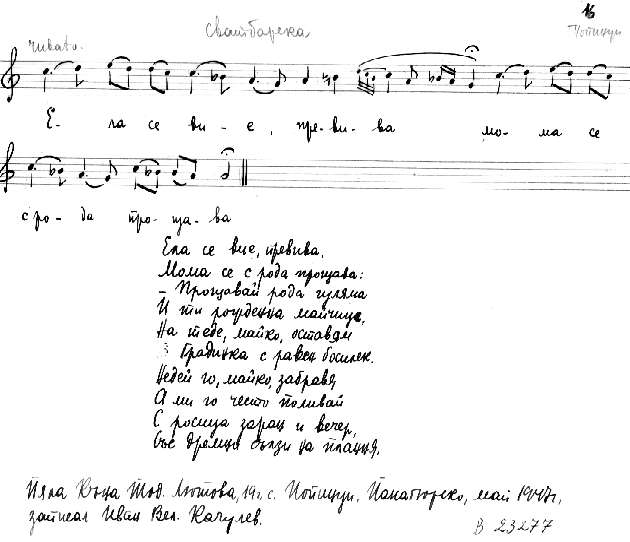 16
Сватбарска
Попинци
rubato.
Е- ла се ви- е, пре- ви- ва мо- ма се
с ро- да про- ща- ва
Ела се вие, превива.
Мома се с рода прощава:
- Прощавай рода гуляма
И ти рожденна майчице,
На тебе, майко, оставям
Градинка с равен босилек.
Недей го, майко, забравя
А ми го често поливай
С росица заран и вечер,
Със дремни сълзи на пладня.
Пяла Къна Тод. Лютова, 19 г. с. Попинци, Панагюрско, май 1947 г.,
записал Иван Вас. Качулев.
В 23277